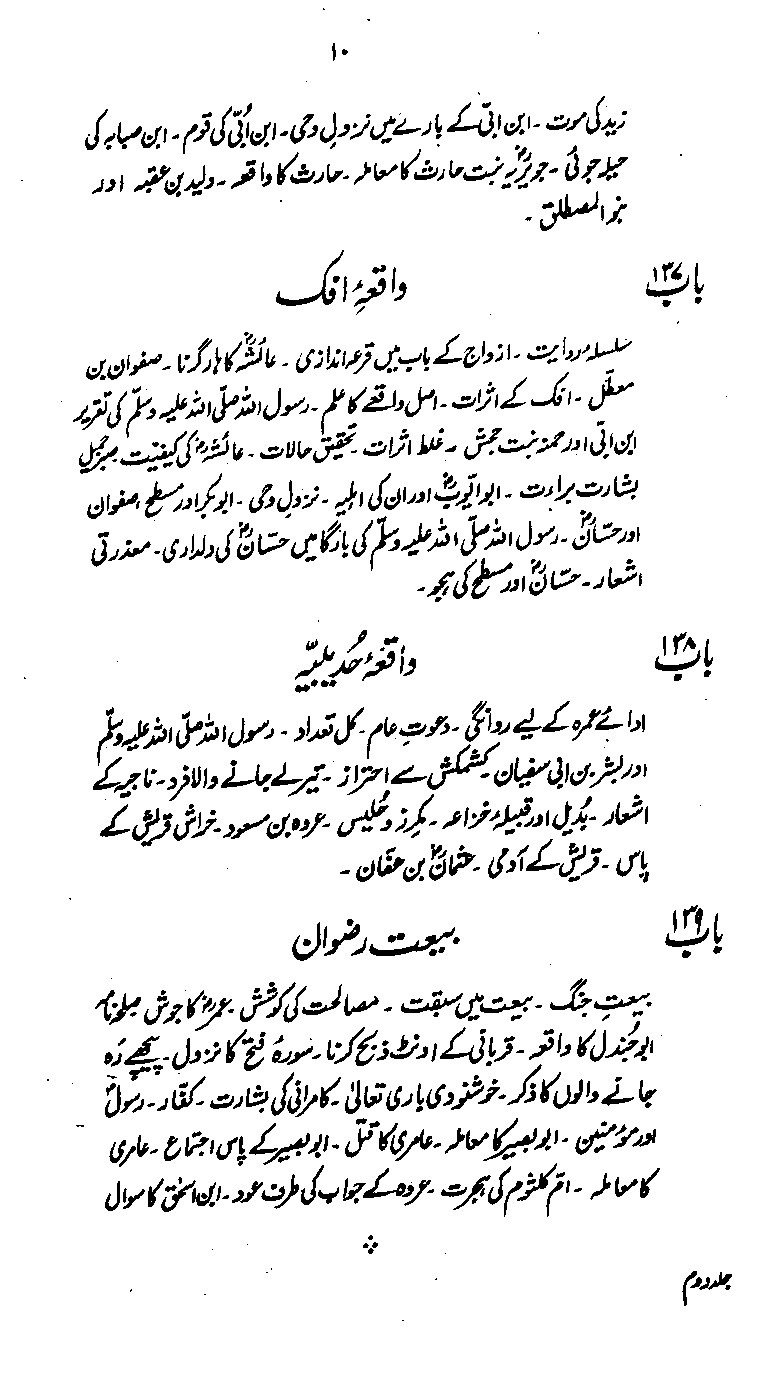 ۱۰
زید کی موت ۔ ابن ابیّ کے بارے میں نزولِ وحی ۔ ابن اُبیّ کی قوم ۔ ابن صبابہ کی
حیلہ جوئی ۔ جویریہؓ بنت حارث کا معاملہ ۔ حارث کا واقعہ ۔ ولید بن عقبہ اور
بنو المصطلق ۔
باب ۱۳۷
واقعۂ افک
سلسلہ روایت ۔ ازواج کے باب میں قرعہ اندازی ۔ عائشہؓ کا ہار گرنا ۔ صفوان بن
معطّل ۔ افک کے اثرات ۔ اصل واقعے کا علم ۔ رسول اللہ صلّی اللہ علیہ وسلّم کی تقریر
ابن ابّی اور حمنہ بنت جحش ۔ غلط اثرات ۔ تحقیق حالات ۔ عائشہؓ کی کیفیت صبرِ جمیل
بشارت براءت ۔ ابو ایّوبؓ اور ان کی اہلیہ ۔ نزولِ وحی ۔ ابوبکر اور مسطح ۔ صفوان
اور حسّانؓ ۔ رسول اللہ صلّی اللہ علیہ وسلّم کی بارگاہ میں حسّانؓ کی دلداری ۔ معذرتی
اشعار ۔ حسّانؓ اور مسطح کی ہجو ۔
باب ۱۳۸
واقعۂ حُدیبیّہ
ادائے عمرہ کے لیے روانگی ۔ دعوتِ عام ۔ کل تعداد ۔ رسول اللہ صلّی اللہ علیہ وسلّم
اور بشر بن ابی سفیان ۔ کشمکش سے احتراز ۔ تیر لے جانے والا فرد ۔ ناجیہ کے
اشعار ۔ بُدیل اور قبیلۂ خزاعہ ۔ مِکرز و حُلیس ۔ عروہ بن مسعود ۔ خراش قریش کے
پاس ۔ قریش کے آدمی ۔ عثمانؓ بن عفّان ۔
باب ۱۳۹
بیعت رضوان
بیعتِ جنگ ۔ بیعت میں سبقت ۔ مصالحت کی کوشش ۔ عمرؓ کا جوش صلحنامہ
ابوجُندل کا واقعہ ۔ قربانی کے اونٹ ذبح کرنا ۔ سورۂ فتح کا نزول ۔ پیچھے رَہ
جانے والوں کا ذکر ۔ خوشنودی باری تعالیٰ ۔ کامرانی کی بشارت ۔ کفّار ۔ رسولؐ
اور مؤمنین ۔ ابوبصیر کا معاملہ ۔ عامری کا قتل ۔ ابوبصیر کے پاس اجتماع ۔ عامری
کا معاملہ ۔ امّ کلثوم کی ہجرت ۔ عروہ کے جواب کی طرف عود ۔ ابن اسحٰق کا سوال
جلد دوم